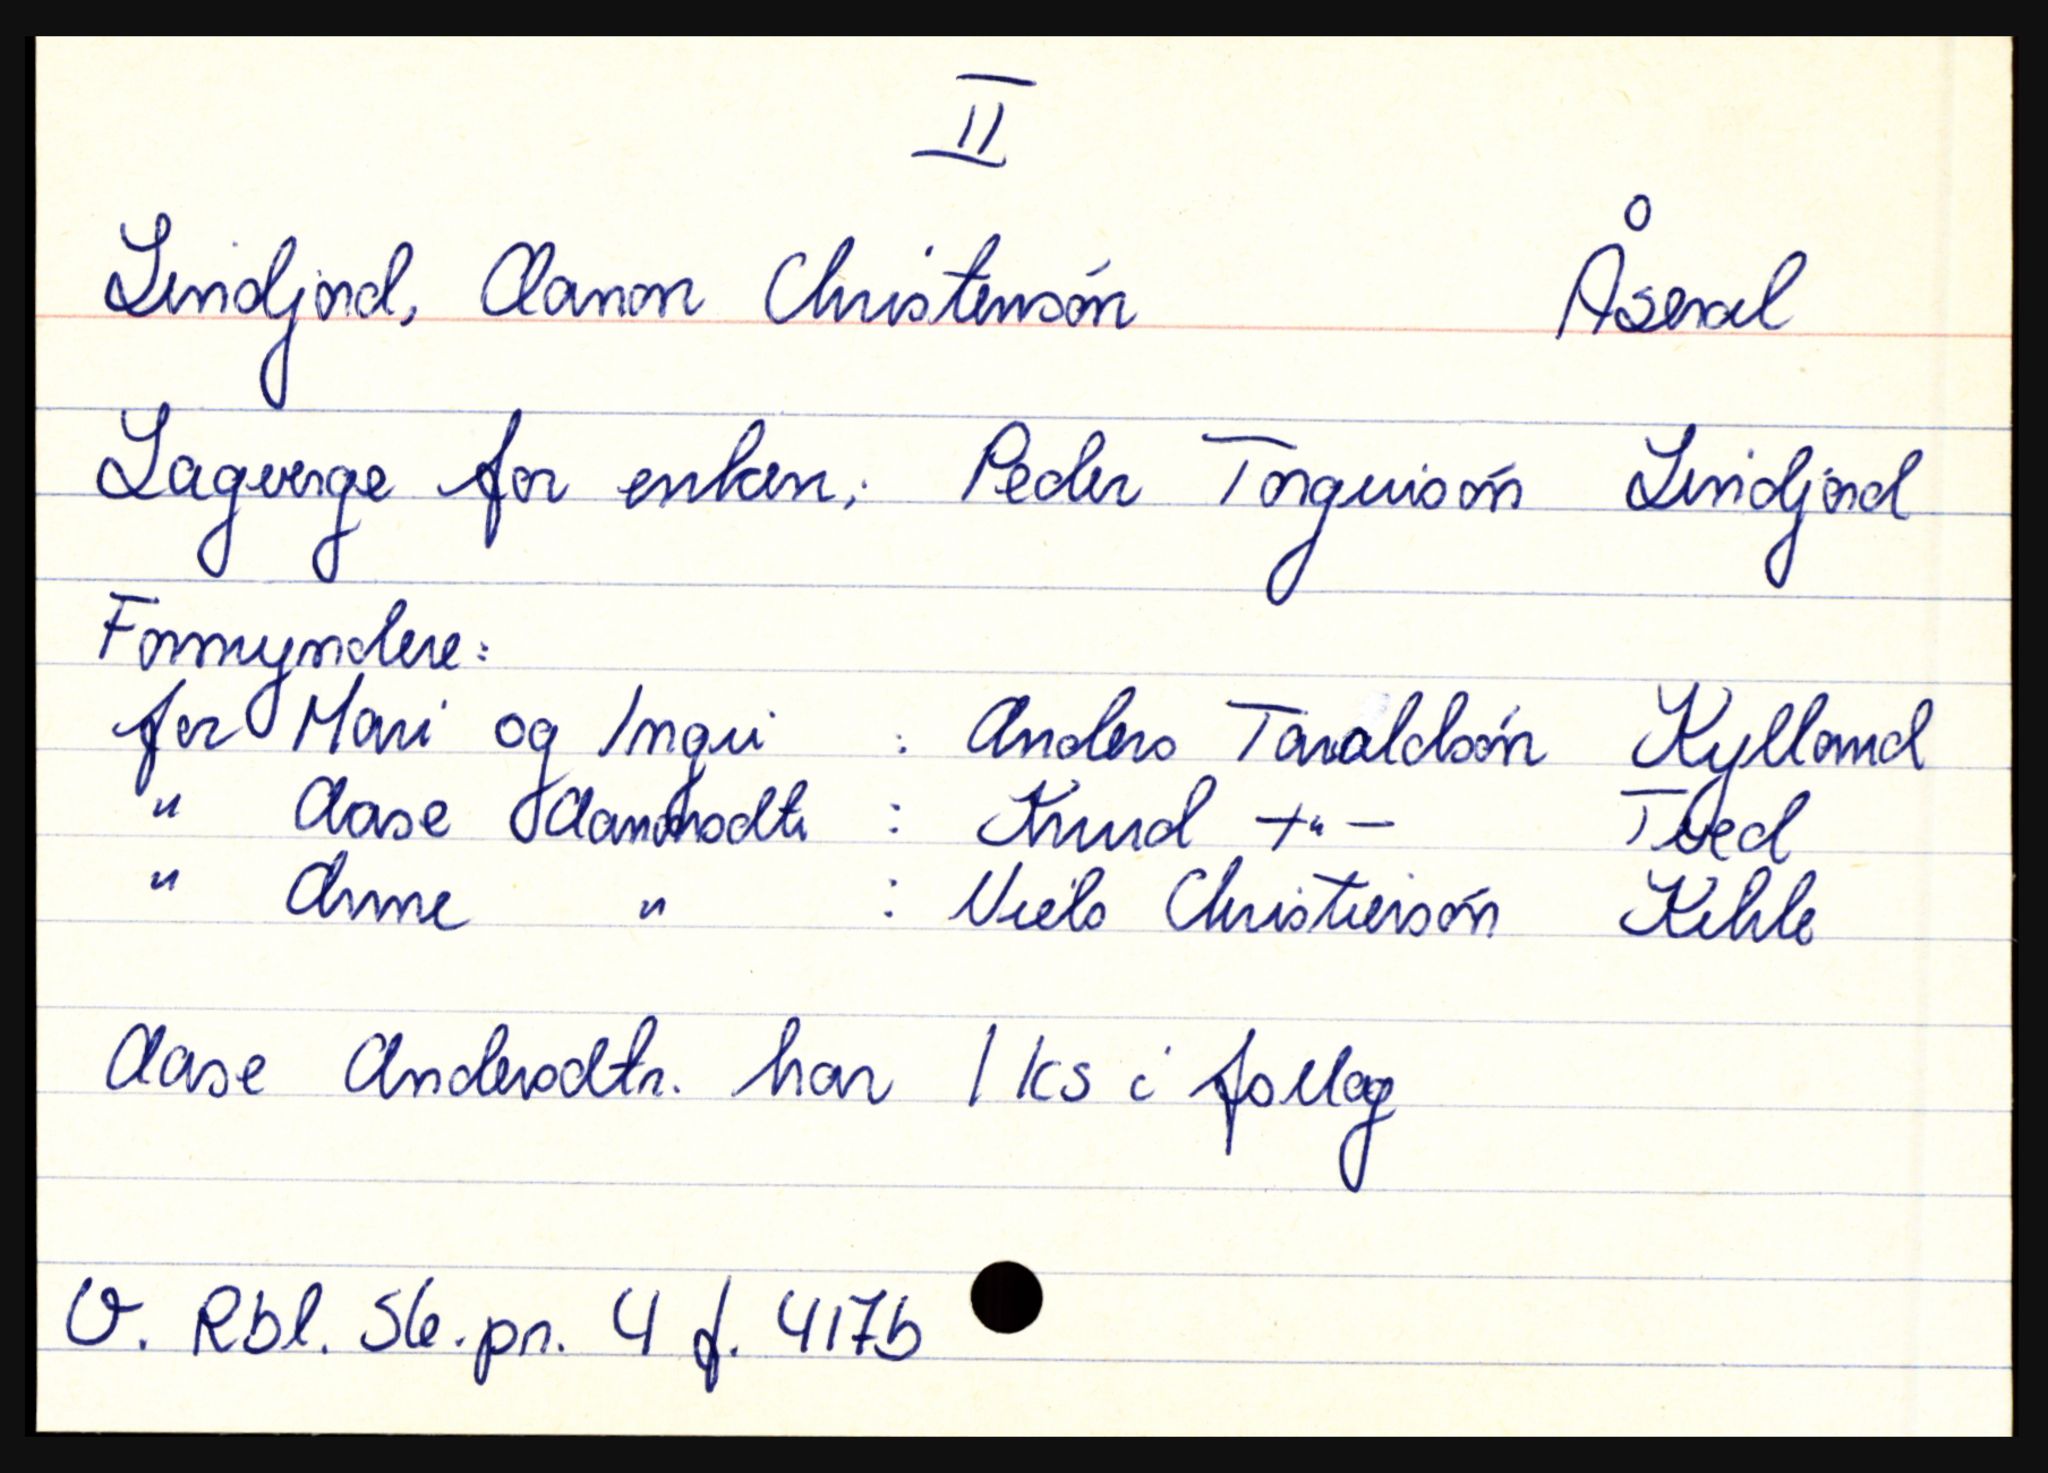 II
Lindjord, Aanon Christensøn Åseral
Lagverge for enken: Peder Torguisøn Lindjord
Formyndere:
for Mari og Ingri : Anders Taraldsøn Kylland
" Aase Aanonsdtr : Knud -"- Tved
" Anne " : Niels Christiensøn Kehle
Aase Andersdtr. har 1 ks i follag
V. Rbl. Sk.pr. 4 f. 417b